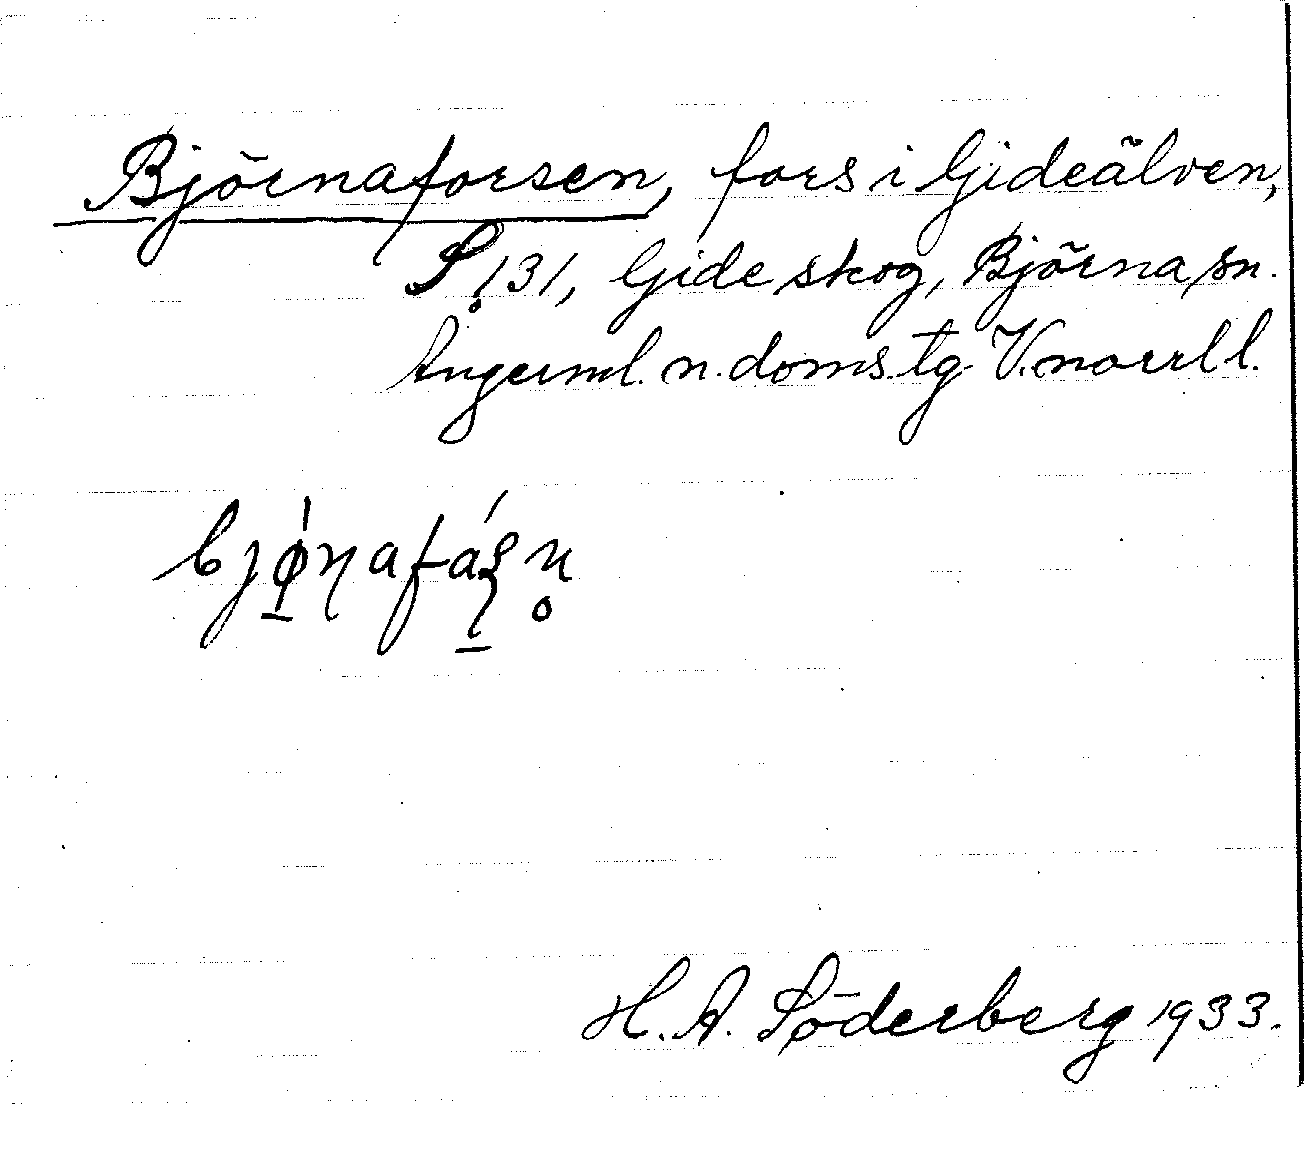 Björnaforsen, fors i Gideälven,
S 131, Gide skog, Björna sn.
Ångerml. n. doms. tg V.norrl l.
bjǿ̲ɳafáʂ̲n̥
H. A. Söderberg 1933.